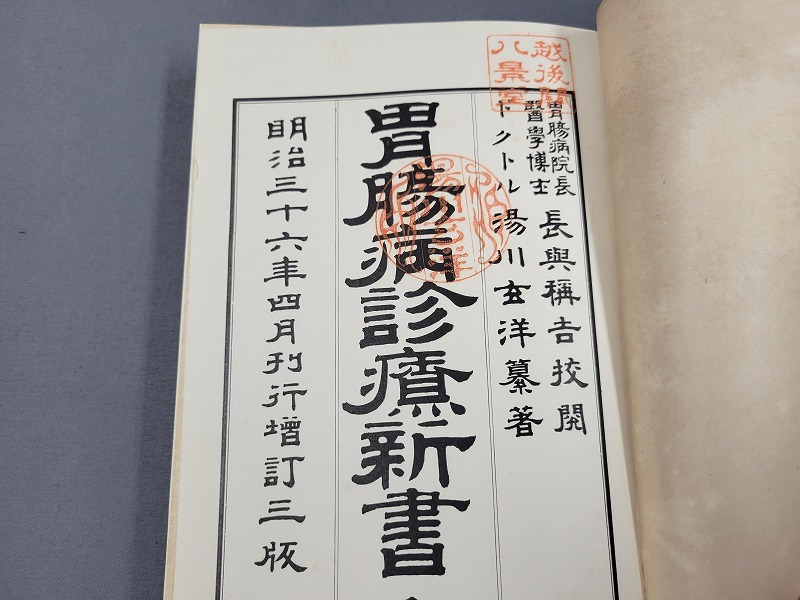 越後關
八景堂
胃膓病院長
醫學博士
長與稱吉挍閱
ドクトル湯川玄洋纂著
胃膓病診療新書
明治三十六年四月刊行增訂三版